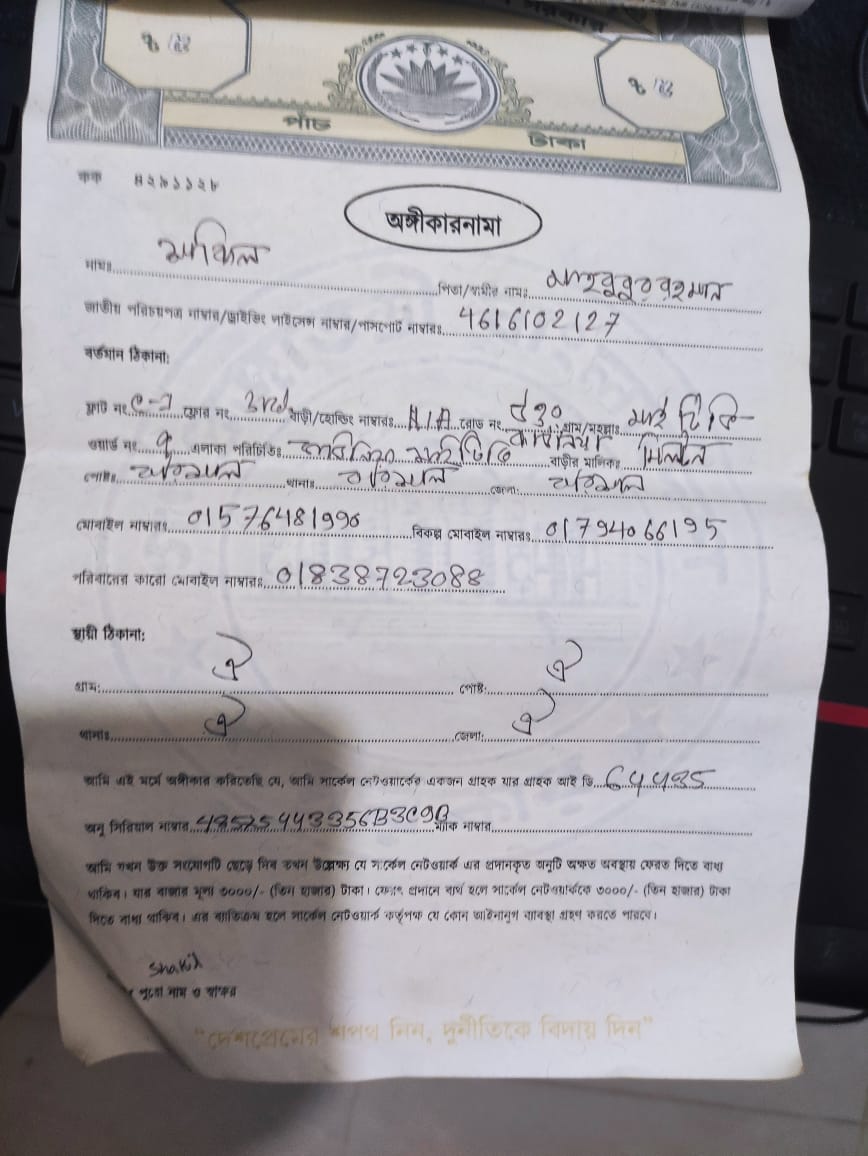 ৫ ৫
পাঁচ টাকা
কক ৪২৯১১২৮
অঙ্গীকারনামা
নামঃ শাকিল পিতা/স্বামীর নামঃ মাহবুবুর রহমান
জাতীয় পরিচয়পত্র নাম্বার/ড্রাইভিং লাইসেন্স নাম্বার/পাসপোর্ট নাম্বারঃ 4616102127
বর্তমান ঠিকানা:
ফ্লাট নং C-1 ফ্লোর নং 3rd বাড়ী/হোল্ডিং নাম্বারঃ N/A রোড নং গ্রাম/মহল্লাঃ
ওয়ার্ড নং ৭ এলাকা পরিচিতিঃ বাড়ীর মালিকঃ মিল্টন
পোষ্টঃ বরিশাল থানাঃ বরিশাল জেলা: বরিশাল
মোবাইল নাম্বারঃ 01576481996 বিকল্প মোবাইল নাম্বারঃ 01794066195
পরিবারের কারো মোবাইল নাম্বারঃ 01838723088
স্থায়ী ঠিকানা:
গ্রাম: ঐ পোষ্ট: ঐ
থানাঃ ঐ জেলা: ঐ
আমি এই মর্মে অঙ্গীকার করিতেছি যে, আমি সার্কেল নেটওয়ার্কের একজন গ্রাহক যার গ্রাহক আই ডি 64495
অনু সিরিয়াল নাম্বার 48575443356B3C9B ম্যাক নাম্বার
আমি যখন উক্ত সংযোগটি ছেড়ে দিব তখন উল্লেখ্য যে সার্কেল নেটওয়ার্ক এর প্রদানকৃত অনুটি অক্ষত অবস্থায় ফেরত দিতে বাধ্য
থাকিব। যার বাজার মূল্য ৩০০০/- (তিন হাজার) টাকা। ফেরৎ প্রদানে ব্যর্থ হলে সার্কেল নেটওয়ার্ককে ৩০০০/- (তিন হাজার) টাকা
দিতে বাধ্য থাকিব। এর ব্যতিক্রম হলে সার্কেল নেটওয়ার্ক কর্তৃপক্ষ যে কোন আইনানুগ ব্যবস্থা গ্রহণ করতে পারবে।
Shakil
পুরো নাম ও স্বাক্ষর
"দেশপ্রেমের শপথ নিন, দুর্নীতিকে বিদায় দিন"